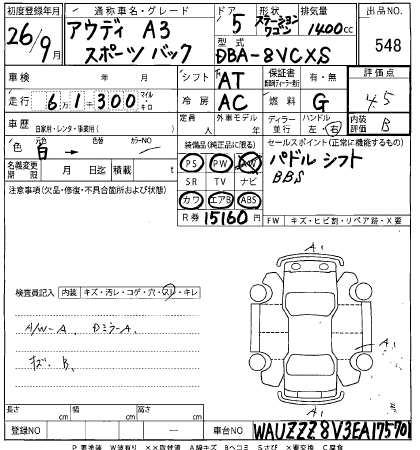 初度登録年月 通称車名・グレード ドア 形状 排気量 出品NO.
26/9月 アウディ A3 スポーツバック 5 ステーションワゴン 1400cc 548
型式 DBA-8VCXS
車検 年 月 シフト AT 保証書 有・無 評価点
走行 6万1300 マイル・キロ 冷房 AC 燃料 G 4.5
車歴 自家用・レンタ・事業用( ) 定員 人 外車モデル 年 ディーラー 並行 ハンドル 左・右 内装評価 B
色 元色 白 → 色替 カラーNO 装備品(純正品に限る) セールスポイント(正常に機能するもの)
名義変更期限 月 日迄 積載 t PS PW AW パドルシフト
注意事項(欠品・修復・不具合箇所および状態) SR TV ナビ BBS
カワ エアB ABS
R券 15160円 FW キズ・ヒビ割・リペア跡・X要
検査員記入 内装 キズ・汚レ・コゲ・穴・スレ・キレ
A/W-A、DミラーA、
キズ、B、
A1
A1
A1
長さ cm 幅 cm 高さ cm
登録NO 車台NO WAUZZZ8V3EA175701
P要塗装 W波有り ××取替済 A線キズ Bヘコミ Sさび ×要交換 C腐食